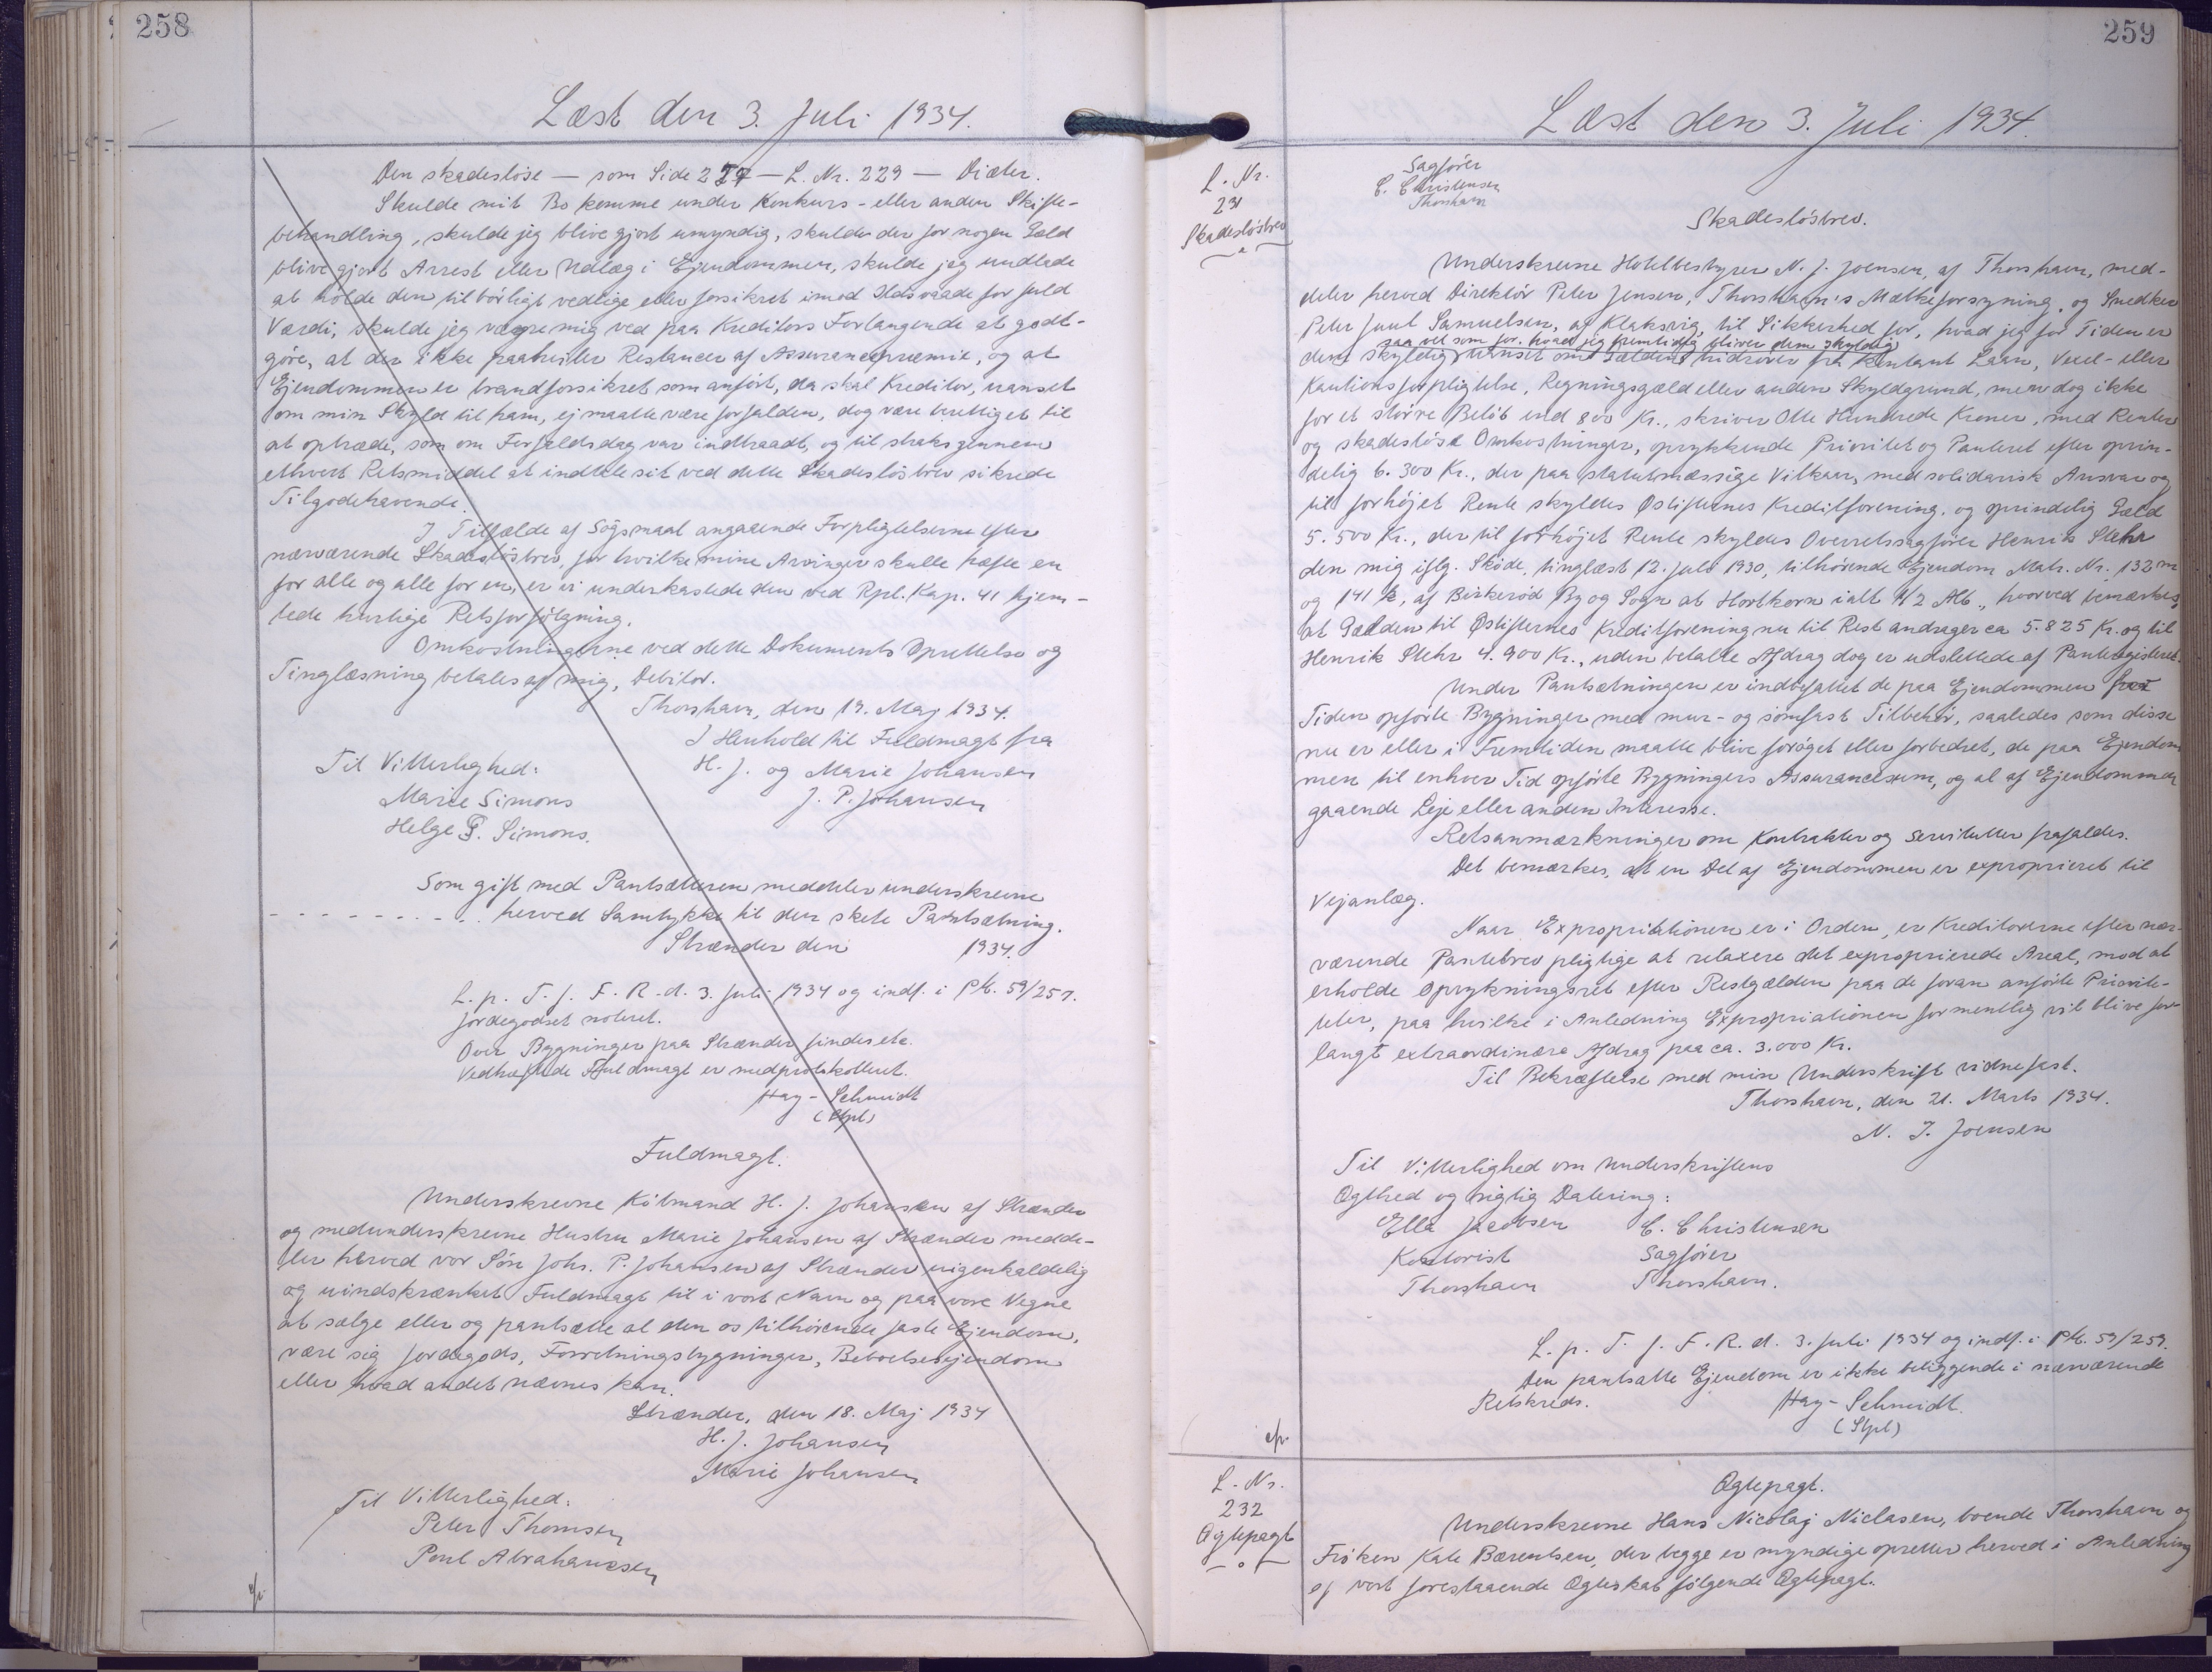 258
Læst den 3. Juli 1934.
Den skadesløse — som Side 227 — L. Nr. 229 — Diæter.
Skulde mit Bo komme under Konkurs- eller anden Skifte-
behandling, skulde jeg blive gjort umyndig, skulde der for nogen Gæld
blive gjort Arrest eller Udlæg i Ejendommen, skulde jeg undlade
at holde den tilbørligt vedlige eller forsikret imod Ildsvaade for fuld
Værdi, skulde jeg vægre mig ved paa Kreditors Forlangende at godt-
gøre, at der ikke paahviler Restancer af Assurancepræmie, og at
Ejendommen er brandforsikret som anført, da skal Kreditor, uanset
om min Skyld til ham, ej maatte være forfalden, dog være berettiget til
at optræde, som om Forfaldsdag var indtraadt, og til straks gennem
ethvert Retsmiddel at indtale sit ved dette Skadesløsbrev sikrede
Tilgodehavende.
I Tilfælde af Søgsmaal angaaende Forpligtelserne efter
nærværende Skadesløsbrev, for hvilke mine Arvinger skulle hæfte en
for alle og alle for en, er vi underkastede den ved Rpl. Kap. 41 hjem-
lede hurtige Retsforfølgning.
Omkostningerne ved dette Dokuments Oprettelse og
Tinglæsning betales af mig, Debitor.
Thorshavn, den 19. Maj 1934.
I Henhold til Fuldmagt fra
Til Vitterlighed: H. J. og Marie Johansen
Marie Simons J. P. Johansen
Helge F. Simons.
Som gift med Pantsætteren meddeler underskrevne
- - - - - - - - - . . herved Samtykke til den skete Pantsætning.
Strænder den 1934.
L. p. T. f. F. R. d. 3. Juli 1934 og indf. i Pk. 59/257.
Jordegodset noteret.
Over Bygninger paa Strænder findes etc.
Vedhæftede Fuldmagt er medprotokolleret.
Hay-Schmidt
(Stpl)
Fuldmagt.
Underskrevne Købmand H. J. Johansen af Strænder
og medunderskrevne Hustru Marie Johansen af Strænder medde-
ler herved vor Søn Johs. P. Johansen af Strænder uigenkaldelig
og uindskrænket Fuldmagt til i vort Navn og paa vore Vegne
at sælge eller og pantsætte al den os tilhørende faste Ejendom,
være sig Jordegods, Forretningsbygninger, Beboelsesejendom
eller hvad andet nævnes kan.
Strænder, den 18. Maj 1934
H. J. Johansen
Marie Johansen
Til Vitterlighed:
Peter Thomsen
Poul Abrahamsen
259
Læst den 3. Juli 1934.
L. Nr.
231
Skadesløsbrev
Sagfører
C. Christensen
Thorshavn
Skadesløsbrev.
Underskrevne Hotelbestyrer N. J. Joensen, af Thorshavn, med-
deler herved Direktør Peter Jensen, Thorshavn's Mælkeforsyning, og Snedker
Peter Juul Samuelsen, af Klaksvig, til Sikkerhed for, hvad jeg for Tiden er
saa vel som for, hvad jeg fremtidig bliver dem skyldig
dem skyldig uanset om Gælden hidrører fra kontant Laan, Vexel- eller
Kautionsforpligtelse, Regningsgæld eller anden Skyldgrund, men dog ikke
for et større Beløb end 800 Kr., skriver Otte Hundrede Kroner, med Renter
og skadesløse Omkostninger, oprykkende Prioritet og Panteret efter oprin-
delig 6.300 Kr., der paa statutmæssige Vilkaar, med solidarisk Ansvar og
til forhøjet Rente skyldes Østifternes Kreditforening, og oprindelig Gæld
5.500 Kr., der til forhøjet Rente skyldes Overretssagfører Henrik Stehr
den mig iflg. Skøde, tinglæst 12. Juli 1930, tilhørende Ejendom Matr. Nr. 132 m
og 141 k, af Birkerød By og Sogn at Hartkorn ialt 1/2 Alb., hvorved bemærkes,
at Gælden til Østifternes Kreditforening nu til Rest andrager ca 5.825 Kr. og til
Henrik Stehr 4.900 Kr., uden betalte Afdrag dog er udslettede af Pantregisteret.
Under Pantsætningen er indbefattet de paa Ejendommen for
Tiden opførte Bygninger med mur- og sømfast Tilbehør, saaledes som disse
nu er eller i Fremtiden maatte blive forøget eller forbedret, de paa Ejendom
men til enhver Tid opførte Bygningers Assurancesum, og al af Ejendommen
gaaende Leje eller anden Interesse.
Retsanmærkninger om Kontrakter og Servitutter frafaldes.
Det bemærkes, at en Del af Ejendommen er exproprieret til
Vejanlæg.
Naar Expropriationen er i Orden, er Kreditorerne efter nær-
værende Pantebrev pligtige at relaxere det exproprierede Areal, mod at
erholde Oprykningsret efter Restgælden paa de foran anførte Priorite-
teter, paa hvilke i Anledning Expropriationen formentlig vil blive for-
langt extraordinære Afdrag paa ca. 3.000 Kr.
Til Bekræftelse med min Underskrift vidnefast.
Thorshavn, den 21. Marts 1934.
N. J. Joensen
Til Vitterlighed om Underskriftens
Ægthed og rigtig Datering:
Ella Jacobsen C. Christensen
Kontorist Sagfører
Thorshavn Thorshavn.
L. p. T. f. F. R. d. 3. Juli 1934 og indf. i Pk. 59/259.
Den pantsatte Ejendom er ikke beliggende i nærværende
Retskreds. Hay-Schmidt.
(Stpl)
L. Nr.
232
Ægtepagt
Ægtepagt.
Underskrevne Hans Nicolaj Niclasen, boende Thorshavn og
Frøken Kate Bærentsen, der begge er myndige opretter herved i Anledning
af vort forestaaende Ægteskab følgende Ægtepagt.